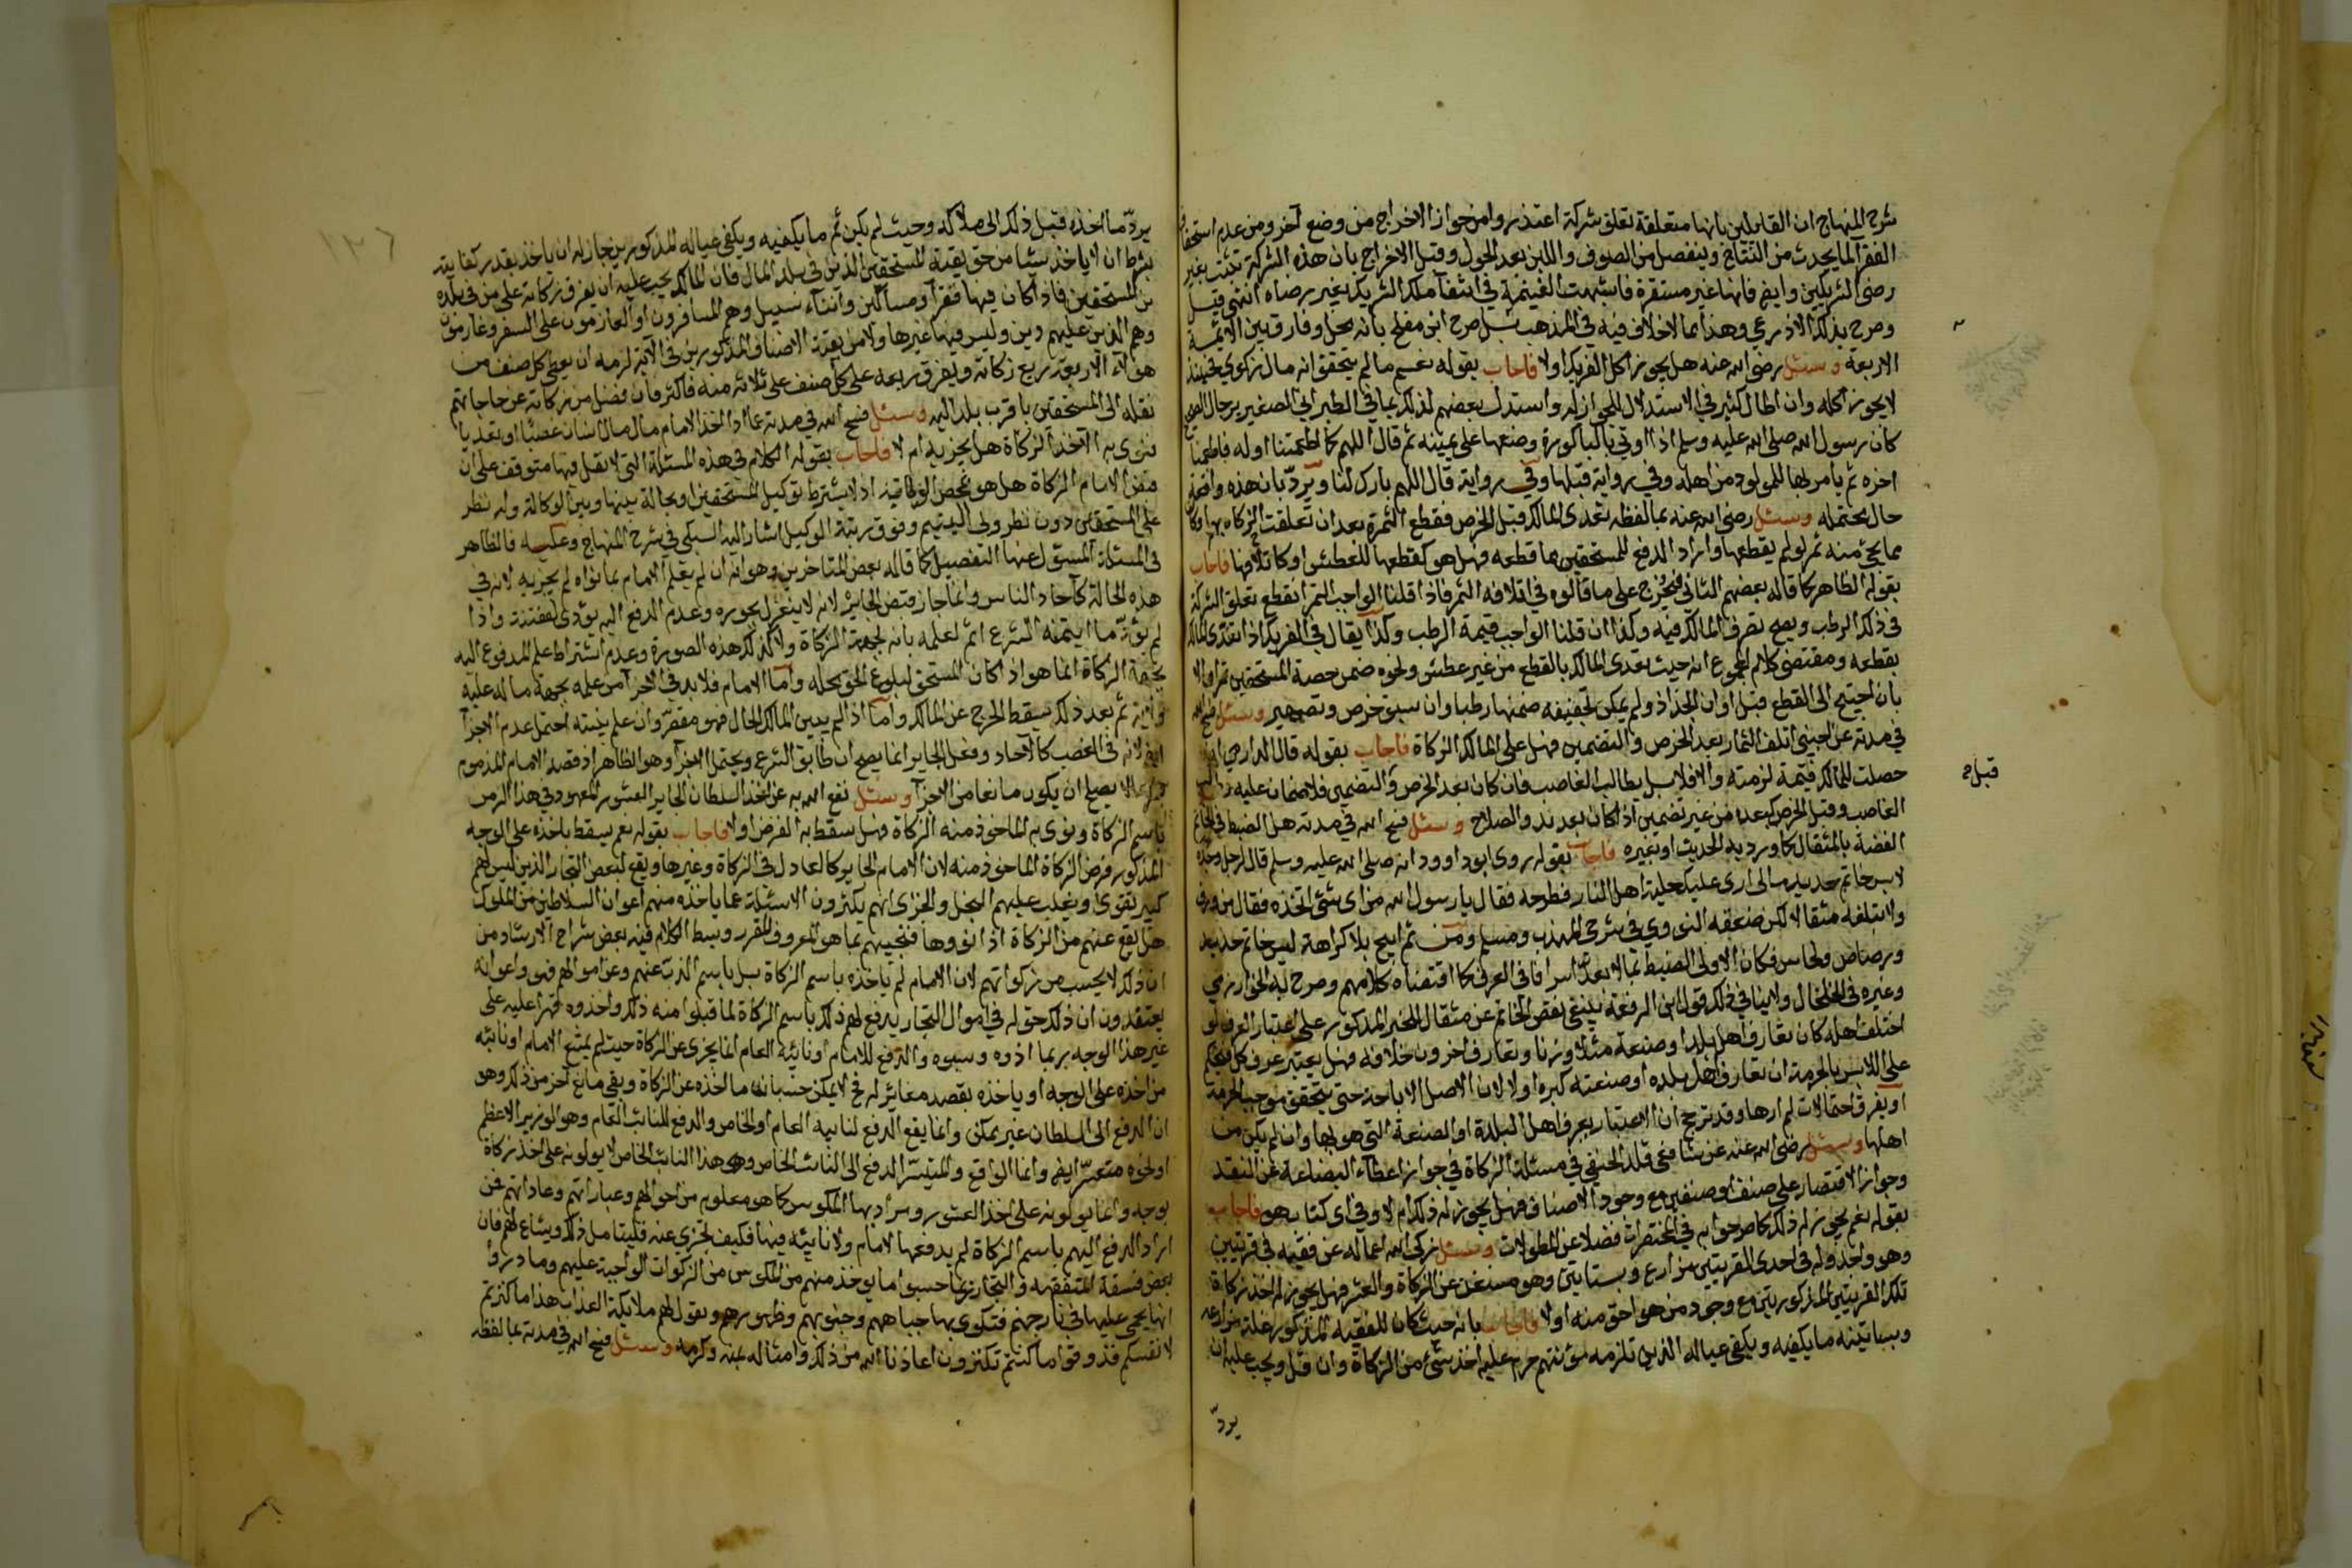 شرح المنهاج ان القايلين بانها متعلقة تعلق شركة اعتذروا من جواز الاخراج من وضع آخر ومن عدم استحقاق
الفقرآ لما يحدث من النتاج وينفصل من الصوف واللبن بعد الحول وقبل الاخراج بان هذه الشركة تثبت بغير
رضى الشريكين وايض فانها غير مستقرة فاشبهت الغنيمة في انتفآ ملك الشريك بغير رضاه انتهى قيل
وصرح بذلك الاذرعي وهذا مما لاخلاف فيه في المذهب بل صرح ابن مفلح بانه محل وفاق بين الائمة
الاربعة وسئل رضى الله عنه هل يجوز اكل الفريك اولا فاجاب بقوله نعم ما لم يتحقق انه مال زكوي فحينئذ
لايجوز اكله وان اطال كثير في الاستدلال للجواز له واستدل بعضهم لذلك بما في الطبراني الصغير برجال الصحيح
كان رسول الله صلى الله عليه وسلم اذا اوتي بالباكورة وضعها على عينه ثم قال اللهم كما اطعمتنا اوله فاطعمنا
اخره ثم يامر بها للمولود من اهله وفي رواية قبلها وفي رواية قال اللهم بارك لنا ويردّ بان هذه واقعة
حال محتمله وسئل رضى الله عنه بما لفظه تعدى المالك قبل الخرص فقطع الثمرة بعد ان تعلقت الزكاه بها وكان
مما يجئ منه تمر لو لم يقطعها واراد الدفع للمستحقين مما قطعه فهل هو كقطعها للعطش او كاتلافها فاجاب
بقوله الظاهر كما قاله بعضهم الثاني فيخرج على ما قالوه في اتلافه الثمر فاذا قلنا الواجب التمر انقطع تعلق الشركة
في ذلك الرطب ويصح تصرف المالك فيه وكذا ان قلنا الواجب قيمة الرطب وكذا يقال في الفريك اذا تعدّى المالك
بقطعه ومقتضى كلام المجموع انه حيث تعدى المالك بالقطع من غير عطش ونحوه ضمن حصة المستحقين تمرا والا
بان احتيج الى القطع قبل اوان الجذاذ ولم يمكن تجفيفه ضمنها رطبا وان سبق خرص وتضمين وسئل فسح الله
في مدته عن اجنبي اتلف الثمار بعد الخرص والتضمين فهل على المالك الزكاة فاجاب بقوله قال الدارمي ان
حصلت للمالك قيمة لزمته والا فلا بل يطالب الغاصب فان كان بعد الخرص والتضمين فلا ضمان عليه
قبل ح
الغاصب وقبل الخرص كبعده من غير تضمين اذا كان بعد بدو الصلاح وسئل فسح الله في مدته هل الضبط في الخاتم
الفضة بالمثقال كما ورد به الحديث او بغيره فاجاب بقوله روى ابو داوود انه صلى الله عليه وسلم قال لرجل وجده
لابس خاتم حديد ما لى ارى عليك حلية اهل النار فطرحه فقال يا رسول الله من اى شئ اتخذه فقال من ورق
ولا تبلغه مثقالا لكن ضعفه النووي في شرحي المهذب ومسلم ومن ثم ابيح بلا كراهة لبس خاتم حديد
ورصاص ونحاس فكان الاولى الضبط بما لا يعدّ اسرافا في العرف كما اقتضاه كلامهم وصرح به الخوارزمي
وغيره في الخلخال ولا ينافي ذلك قول ابن الرفعة ينبغى نقص الخاتم عن مثقال للخبر المذكور على اعتبار العرف لو
اختلف اهله كان تعارف اهل بلد او صنعة مثلا وزنا وتعارف اخرون خلافه فهل يعتبر عرف كل فيحكم
على اللابس بالحرمة ان تعارف اهل بلده او صنعته كبره اولا لان الاصل الاباحة حتى يتحقق موجب الحرمة
او يفرق احتمالات لم ارها وقد ترجح ان الاعتبار بعرف اهل البلدة او الصنعة التي هو بها وان لم يكن من
اهلها وسئل رضى الله عنه عن شافعي قلد الحنفي في مسئلة الزكاة في جواز اعطآء البضاعة عن النقد
وجواز الاقتصار على صنف او صنفين مع وجود الاصناف فهل يجوز له ذلك ام لا وفي اى كتاب هو فاجاب
بقوله نعم يجوز له ذلك كما صرحوا به في المختصرات فضلا عن المطولات وسئل زكى الله اعماله عن فقيه في قريتين
وهو واحد وله في احدى القريتين مزارع وبساتين وهو مستغن عن الزكاة والعشر فهل يجوز له اخذ زكاة
تلك القريتين المذكورتين مع وجود من هو احق منه اولا فاجاب بانه حيث كان للفقيه المذكور غلة مزارعه
وبساتينه ما يكفيه ويكفي عياله الذين تلزمه مؤنتهم حرم عليه اخذ شئ من الزكاة وان قل ويجب عليه ان
يردّ
١٢٦
يردّ ما اخذه قبل ذلك الى ملاكه وحيث لم يكن ثم ما يكفيه ويكفي عياله المذكورين جاز له ان ياخذ بقدر كفايته
بشرط ان لا ياخذ شيئا من حق بقية المستحقين الذين في بلد المال فان المالك يجب عليه ان يفرق زكاته على من في بلده
من المستحقين فاذا كان فيها فقرآ ومساكين وابنآء سبيل وهم المسافرون او العازمون على السفر وغارمون
وهم الذين عليهم دين وليس فيها غيرها ولا من بقية الاصناف المذكورين في الآية لزمه ان يعطى كل صنف من
هولآء الاربعة ربع زكاته ويفرق ربعه على كل صنف على ثلاثة منه فاكثر فان فضل من زكاته عن حاجاتهم
نقله الى المستحقين باقرب بلد اليه وسئل فسح الله في مدته عما اذا اخذ الامام مال انسان غصبا او تعديا
فنوى به الآخذ الزكاة هل يجزيه ام لا فاجاب بقوله الكلام في هذه المسئلة التي لا نقل فيها متوقف على ان
قبض الامام الزكاة هل هو بمحض الولاية اذ لا يشترط توكيل المستحقين او بحالة بينها وبين الوكالة وله نظر
على المستحقين دون نظر ولى اليتيم وفوق رتبة الوكيل اشار اليه السبكي في شرح المنهاج وعكسه فالظاهر
في المسئلة المسئول عنها التفصيل كما قاله بعض المتاخرين وهو انه ان لم يعلم الامام بما نواه لم يجزيه لانه في
هذه الحالة كآحاد الناس وانما جاز قبض الجاير لانه لا ينعزل بجوره وعدم الدفع اليه يؤدى لفتنة واذا
لم يؤدّ ما ايتمنه الشرع اثم لعلمه بانه لجهة الزكاة ولا كذلك هذه الصورة وعدم اشتراط علم المدفوع اليه
بجهة الزكاة انما هو اذا كان المستحق لبلوغ الحق محله واما الامام فلا بد في الاجزآ من علمه بجهة ما له عليه
ولاية ثم بعد ذلك يسقط الحرج عن المالك واما اذا لم يبين المالك الحال فهو مقصّر وان علم بنيته احتمل عدم الاجزآ
ايض لانه في الغصب كالآحاد وفعل الجاير انما يصح ان طابق الشرع ويحتمل الاجزآ وهو الظاهر اذ قصد الامام المذموم
لا يصلح ان يكون مانعا من الاجزآ وسئل نفع الله به عن اخذ السلطان الجاير العشور المعهود في هذا الزمن
باسم الزكاة ونوى به الماخوذ منه الزكاة فهل يسقط به الفرض اولا فاجاب بقوله نعم يسقط باخذه على الوجه
المذكور فرض الزكاة الماخوذ منه لان الامام الجاير كالعادل في الزكاة وغيرها ويقع لبعض التجار الذين ليس لهم
كبير تقوى ويغلب عليهم البخل والخزى انهم يكثرون الاسئلة عما ياخذه منهم اعوان السلاطين من المكوس
هل يقع عنهم من الزكاة اذا نووها فنجيبهم بما هو المعروف المقرر وبسط الكلام فيه بعض شراح الارشاد من
ان ذلك لا يحسب من زكواتهم لان الامام لم ياخذه باسم الزكاة بل باسم الذبّ عنهم وعن اموالهم فهو واعوانه
يعتقدون ان ذلك حق له في اموال التجار يدفع لهم ذلك باسم الزكاة لما قبلوا منه ذلك واخذوه قهرا عليه على
غير هذا الوجه بربما اذوه وسبوه والدفع للامام او نائبه العام انما يجزى عن الزكاة حيث لم يمتنع الامام او نائبه
من اخذه على الوجه او ياخذه بقصد مغاير له فح لا يمكن حسبان ما اخذه عن الزكاة وبقي مانع آخر من ذلك وهو
ان الدفع الى السلطان غير ممكن وانما يقع الدفع لنائبه العام او الخاص والدفع للنائب العام وهو الوزير الاعظم
او نحوه متعسّر ايض وانما الواقع والمتيسّر الدفع الى النائب الخاص وهو هذا النائب الخاص لا يولونه على اخذ زكاة
بوجه وانما يولونه على اخذ العشور ومرادهم بها المكوس كما هو معلوم من احوالهم وعباراتهم وعاداتهم فمن
اراد الدفع اليهم باسم الزكاة لم يدفعها للامام ولا نائبه فيها فكيف تجزى عنه فليتامل ذلك ويشاع لهم فان
بعض فسقة المتفقهة والتجار ربما حسبوا ما يوخذ منهم من المكوس من الزكوات الواجبة عليهم وما دروا
انها يحمى عليها في نار جهنم فتكوى بها جباههم وجنوبهم وظهورهم ويقول لهم ملايكة العذاب هذا ما كنزتم
لانفسكم فذوقوا ما كنتم تكنزون اعاذنا الله من ذلك وامثاله بمنه وكرمه وسئل فسح الله في مدته بما لفظه